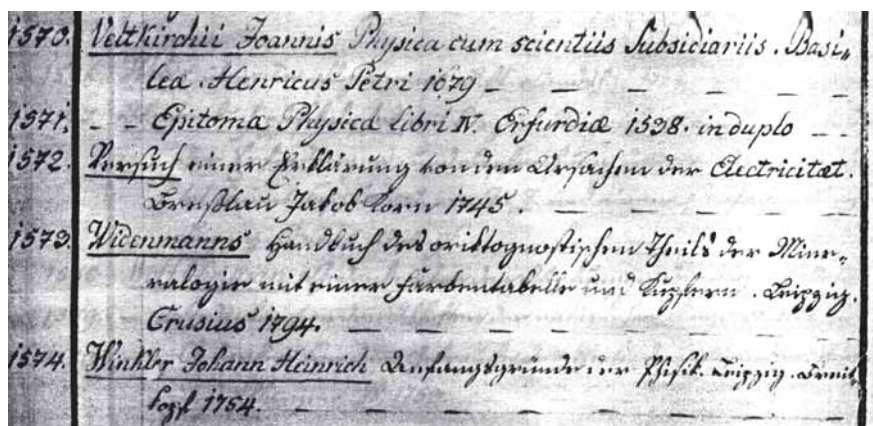 1570. Veltkirchii Joannis Physica cum scientiis Subsidiariis. Basi„
leæ. Henricus Petri 1679 _ _ _ _ _
1571. _ _ Epitoma Physica libri IV. Erfurdiæ 1538. in duplo _ _
1572. Versuch einer Erklärung von den Ursachen der Electricitæt.
Breßlau Jakob Korn 1745. _ _ _ _ _
1573. Widenmanns Handbuch des oriktognostischen Theils der Mine„
ralogie mit einer Farbentabelle und Kupfern. Leipzig.
Crusius 1794. _ _ _ _ _ _
1574. Winkler Johann Heinrich Anfangsgründe der Phisik. Leipzig. Breit„
kopf 1754. _ _ _ _ _ _ _